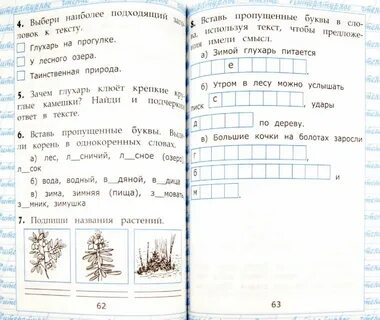 4. Выбери наиболее подходящий заго-
ловок к тексту.
Глухарь на прогулке.
У лесного озера.
Таинственная природа.
5. Зачем глухарь клюёт крепкие кру-
глые камешки? Найди и подчеркни
ответ в тексте.
6. Вставь пропущенные буквы. Выде-
ли корень в однокоренных словах.
а) лес, л_сничий, л_сное (озеро),
л_сок
б) вода, водный, в_дяной, в_дица
в) зима, зимняя (пища), з_мовать,
з_мник, зимушка
7. Подпиши названия растений.
62
8. Вставь пропущенные буквы в сло-
ва, используя текст, чтобы предложе-
ния имели смысл.
а) Зимой глухарь питается
е
б) Утром в лесу можно услышать
писк с , удары
д по дереву.
в) Большие кочки на болотах заросли
г
б и
м .
63